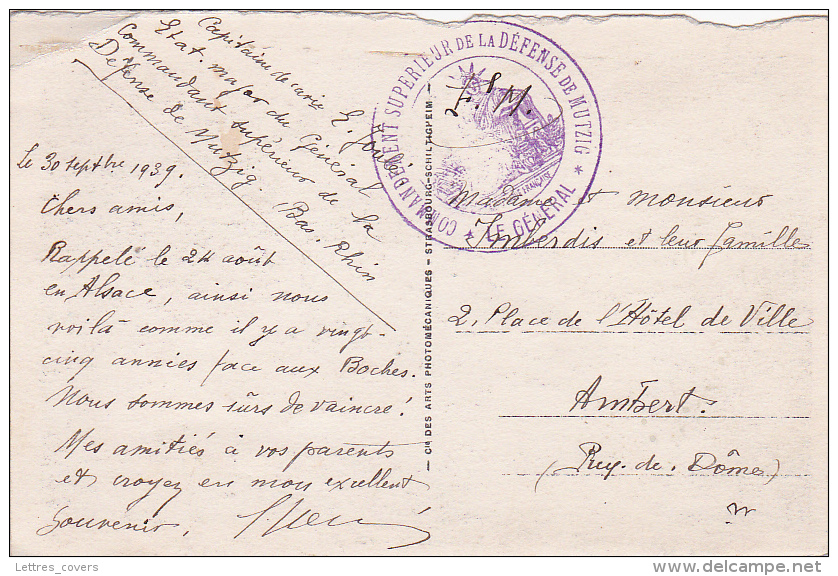 Capitaine de
Etat. major du Général
Commandant supérieur de la
Défense de Mutzig. Bas. Rhin
Le 30 septbre 1939.
Chers amis,
Rappelé le 24 août
en Alsace, ainsi nous
voilà comme il y a vingt-
cinq années face aux Boches.
Nous sommes sûrs de vaincre!
Mes amitiés à vos parents
et croyez en mon excellent
souvenir,
— Cie DES ARTS PHOTOMÉCANIQUES - STRASBOURG-SCHILTIGHEIM —
COMMANDEMENT SUPERIEUR DE LA DÉFENSE DE MUTZIG
* LE GÉNÉRAL *
F. M.
Madame et monsieur
Imberdis et leur famille
2, Place de l'Hôtel de Ville
Ambert.
(Puy. de. Dôme)
Lettres_covers
delcampe.net